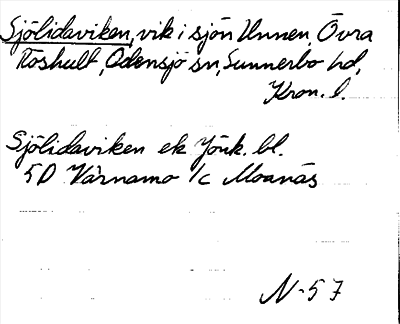 Sjölidaviken, vik i sjön Unnen, Övra
Röshult, Odensjö sn, Sunnerbo hd,
Kron. l.
Sjölidaviken ek Jönk. bl.
5D Värnamo 1c Moanäs
N-57